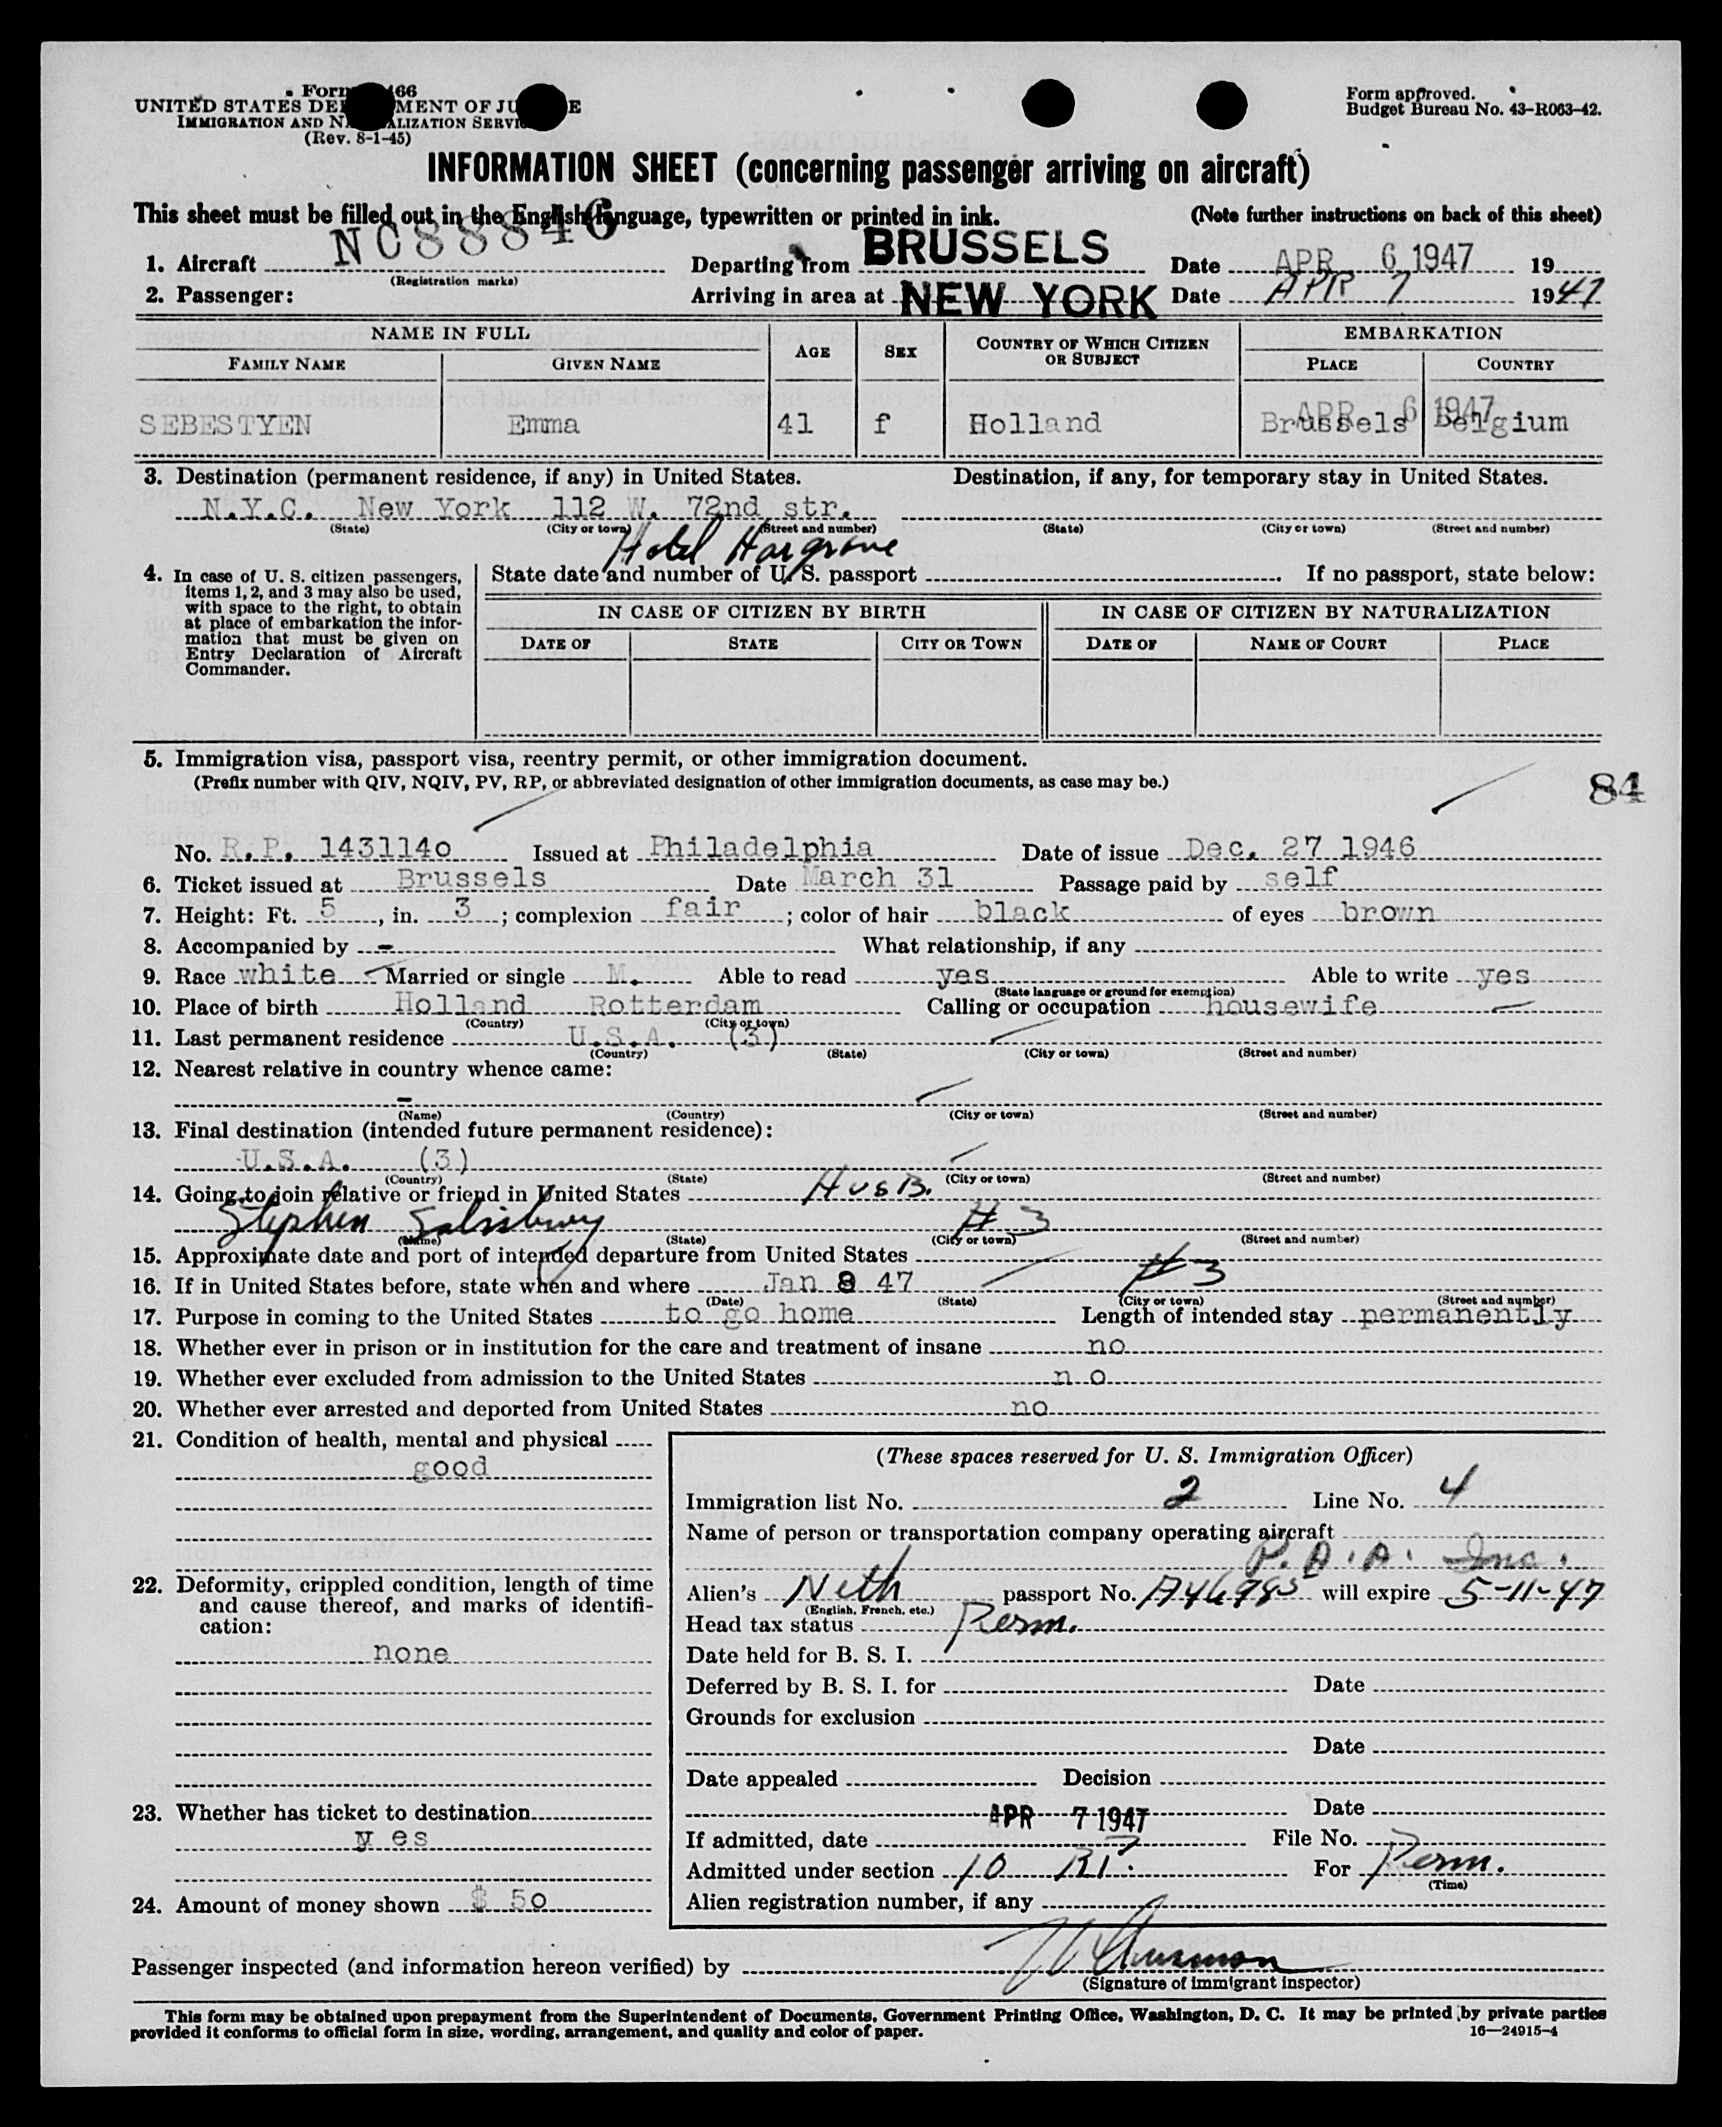 Form 466
UNITED STATES DEPARTMENT OF JUSTICE
IMMIGRATION AND NATURALIZATION SERVICE
(Rev. 8-1-45)
Form approved.
Budget Bureau No. 43-R063-42.
INFORMATION SHEET (concerning passenger arriving on aircraft)
This sheet must be filled out in the English language, typewritten or printed in ink. (Note further instructions on back of this sheet)
1. Aircraft NC88846 Departing from BRUSSELS Date APR 6 1947 19
(Registration marks)
2. Passenger: Arriving in area at NEW YORK Date APR 7 1947
NAME IN FULL AGE SEX COUNTRY OF WHICH CITIZEN OR SUBJECT EMBARKATION
FAMILY NAME GIVEN NAME PLACE COUNTRY
APR 6 1947
SEBESTYEN Emma 41 f Holland Brussels Belgium
3. Destination (permanent residence, if any) in United States. Destination, if any, for temporary stay in United States.
N.Y.C. New York 112 W. 72nd str.
(State) (City or town) (Street and number) (State) (City or town) (Street and number)
Hotel Hargrave
4. In case of U. S. citizen passengers, items 1, 2, and 3 may also be used, with space to the right, to obtain at place of embarkation the information that must be given on Entry Declaration of Aircraft Commander.
State date and number of U. S. passport If no passport, state below:
IN CASE OF CITIZEN BY BIRTH IN CASE OF CITIZEN BY NATURALIZATION
DATE OF STATE CITY OR TOWN DATE OF NAME OF COURT PLACE
5. Immigration visa, passport visa, reentry permit, or other immigration document.
(Prefix number with QIV, NQIV, PV, RP, or abbreviated designation of other immigration documents, as case may be.) 84
No. R.P. 1431140 Issued at Philadelphia Date of issue Dec. 27 1946
6. Ticket issued at Brussels Date March 31 Passage paid by self
7. Height: Ft. 5, in. 3; complexion fair; color of hair black of eyes brown
8. Accompanied by - What relationship, if any
9. Race white Married or single M. Able to read yes Able to write yes
(State language or ground for exemption)
10. Place of birth Holland Rotterdam Calling or occupation housewife
(Country) (City or town)
11. Last permanent residence U.S.A. (3)
(Country) (State) (City or town) (Street and number)
12. Nearest relative in country whence came:
-
(Name) (Country) (City or town) (Street and number)
13. Final destination (intended future permanent residence):
U.S.A. (3)
(Country) (State) (City or town) (Street and number)
14. Going to join relative or friend in United States HUSB.
Stephen Salisbury # 3
(Name) (State) (City or town) (Street and number)
15. Approximate date and port of intended departure from United States
16. If in United States before, state when and where Jan 8 47 #3
(Date) (State) (City or town) (Street and number)
17. Purpose in coming to the United States to go home Length of intended stay permanently
18. Whether ever in prison or in institution for the care and treatment of insane no
19. Whether ever excluded from admission to the United States no
20. Whether ever arrested and deported from United States no
21. Condition of health, mental and physical
good
22. Deformity, crippled condition, length of time and cause thereof, and marks of identification:
none
23. Whether has ticket to destination
yes
24. Amount of money shown $ 50
(These spaces reserved for U. S. Immigration Officer)
Immigration list No. 2 Line No. 4
Name of person or transportation company operating aircraft
P.A.A. Inc.
Alien's Neth passport No. A46985 will expire 5-11-47
(English, French, etc.)
Head tax status Perm.
Date held for B. S. I.
Deferred by B. S. I. for Date
Grounds for exclusion
Date
Date appealed Decision
Date
APR 7 1947
If admitted, date File No.
Admitted under section 10 RP. For Perm.
(Time)
Alien registration number, if any
Passenger inspected (and information hereon verified) by
(Signature of immigrant inspector)
This form may be obtained upon prepayment from the Superintendent of Documents, Government Printing Office, Washington, D. C. It may be printed by private parties
provided it conforms to official form in size, wording, arrangement, and quality and color of paper. 16—24915-4